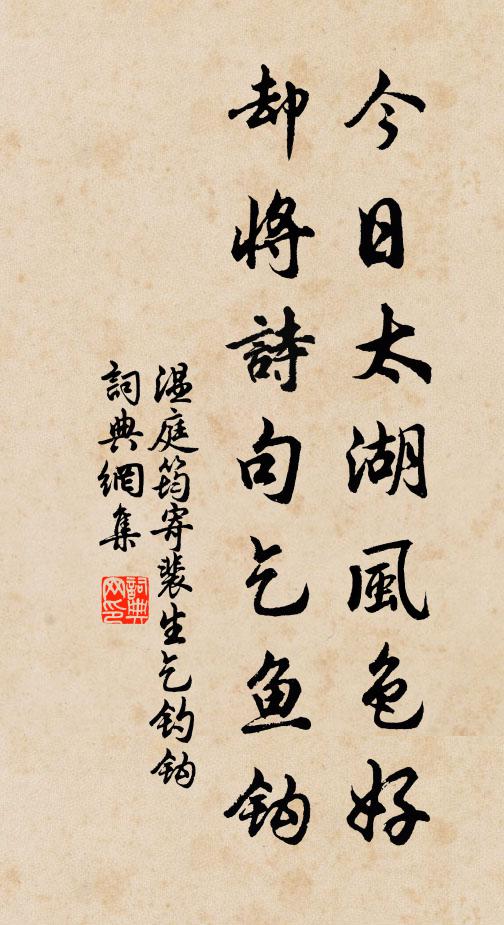 今日太湖風色好
却將詩句乞鱼鈎
温庭筠寄裴生乞釣鈎
詞典網集
詞典网印